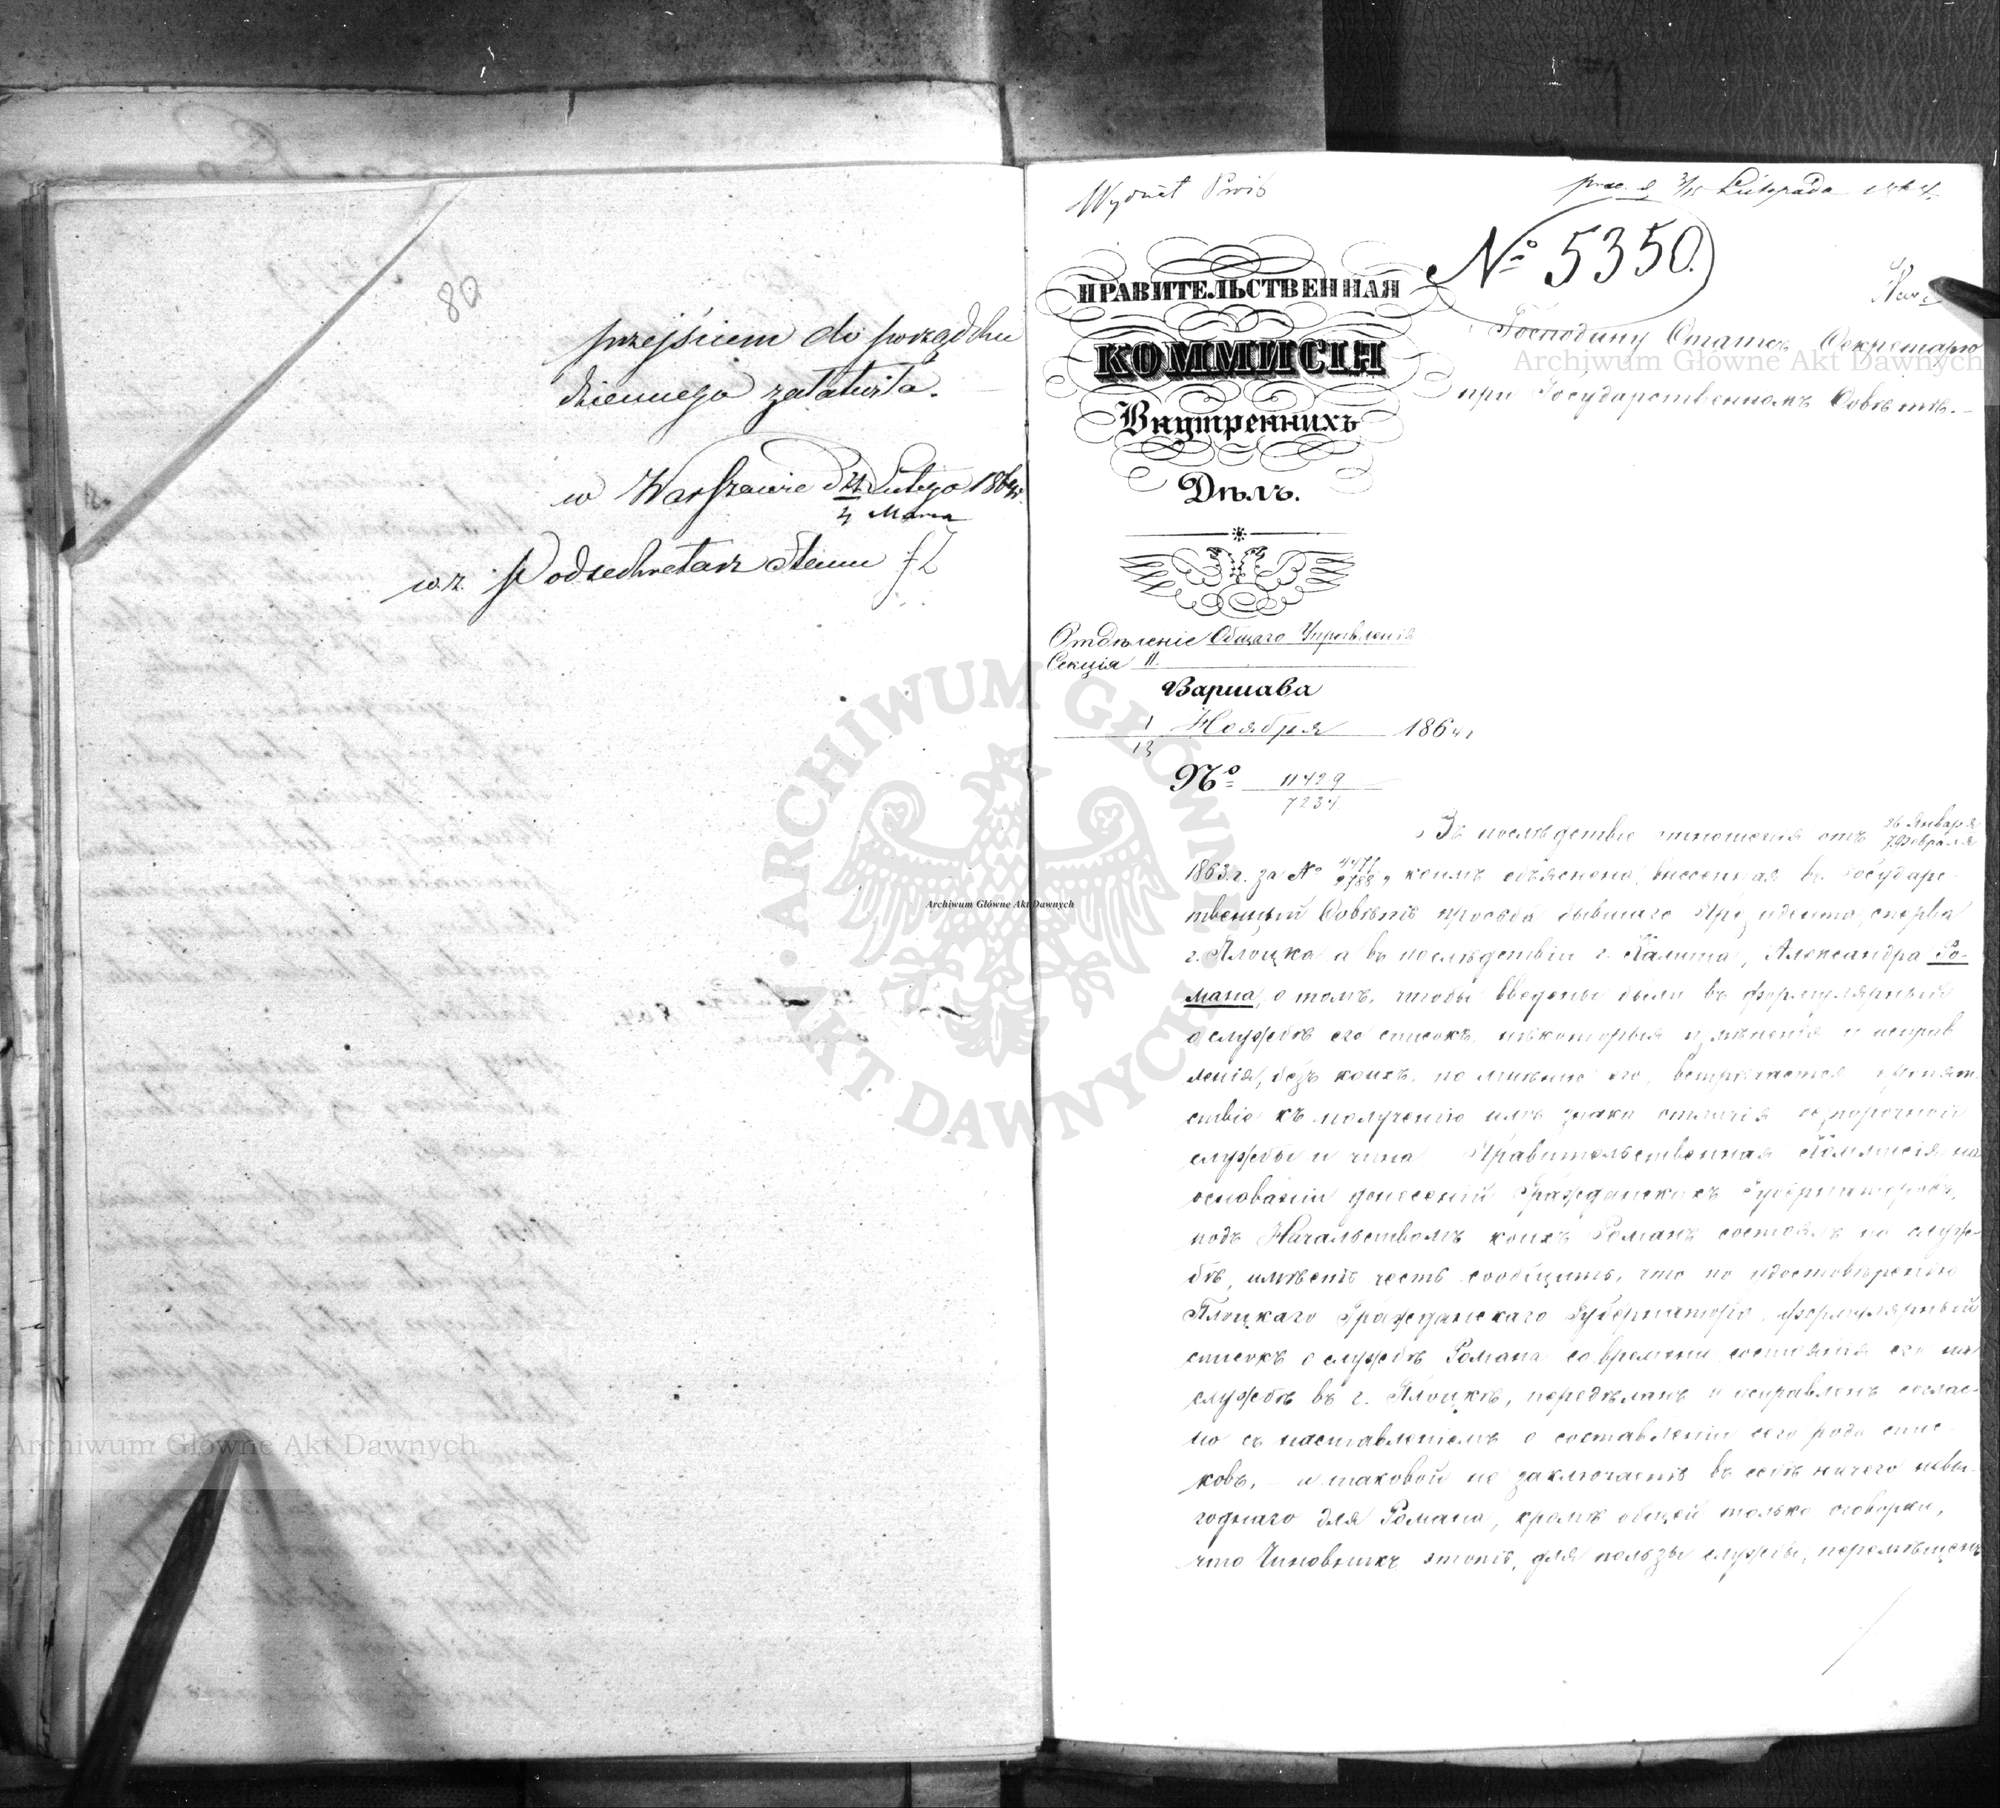 80
przejściem do porządku
dziennego załatwiła.
w Warszawie d 21 Lutego 1864 r.
4 Marca
w.z. Podsekretarz Stanu
Wydział
Listopada 1864
№ 5350.
ПРАВИТЕЛЬСТВЕННАЯ
КОММИСІЯ
Внутреннихъ
Дѣлъ.
Господину Статсъ Секретарю
при Государственномъ Совѣтѣ.
Отдѣленіе Общаго Управленія
Секція II.
Варшава
1
13 Ноября 1864 г
№ 11429
7234
Въ послѣдствіе отношенія отъ 26 Января
7 Февраля
1863 г. за № коимъ объяснена, внесенная въ Государс-
твенный Совѣтъ просьба бывшаго Президента, сперва
г. Плоцка а въ послѣдствіи г. Калиша, Александра Ро-
мана, о томъ, чтобы введены были въ формулярный
о службѣ его списокъ, нѣкоторыя измѣненія и исправ
ленія, безъ коихъ, по мнѣнію его, встрѣчается препят-
ствіе къ полученію имъ знака отличія безпорочной
службы и чина Правительственная Коммисія на
основаніи донесеній Гражданскихъ Губернаторовъ,
подъ Начальствомъ коихъ Романъ состоялъ на служ-
бѣ, имѣетъ честь сообщить, что по удостовѣренію
Плоцкаго Гражданскаго Губернатора, формулярный
списокъ о службѣ Романа со времени состоянія его на
службѣ въ г. Плоцкѣ, передѣланъ и исправленъ соглас-
но съ наставленіемъ о составленіи сего рода спис-
ковъ, – и таковой не заключаетъ въ себѣ ничего невы-
годнаго для Романа, кромѣ общей только оговорки,
что Чиновникъ этотъ, для пользы службы, перемѣщенъ
Archiwum Główne Akt Dawnych
Archiwum Główne Akt Dawnych
Archiwum Główne Akt Dawnych
ARCHIWUM GŁÓWNE AKT DAWNYCH